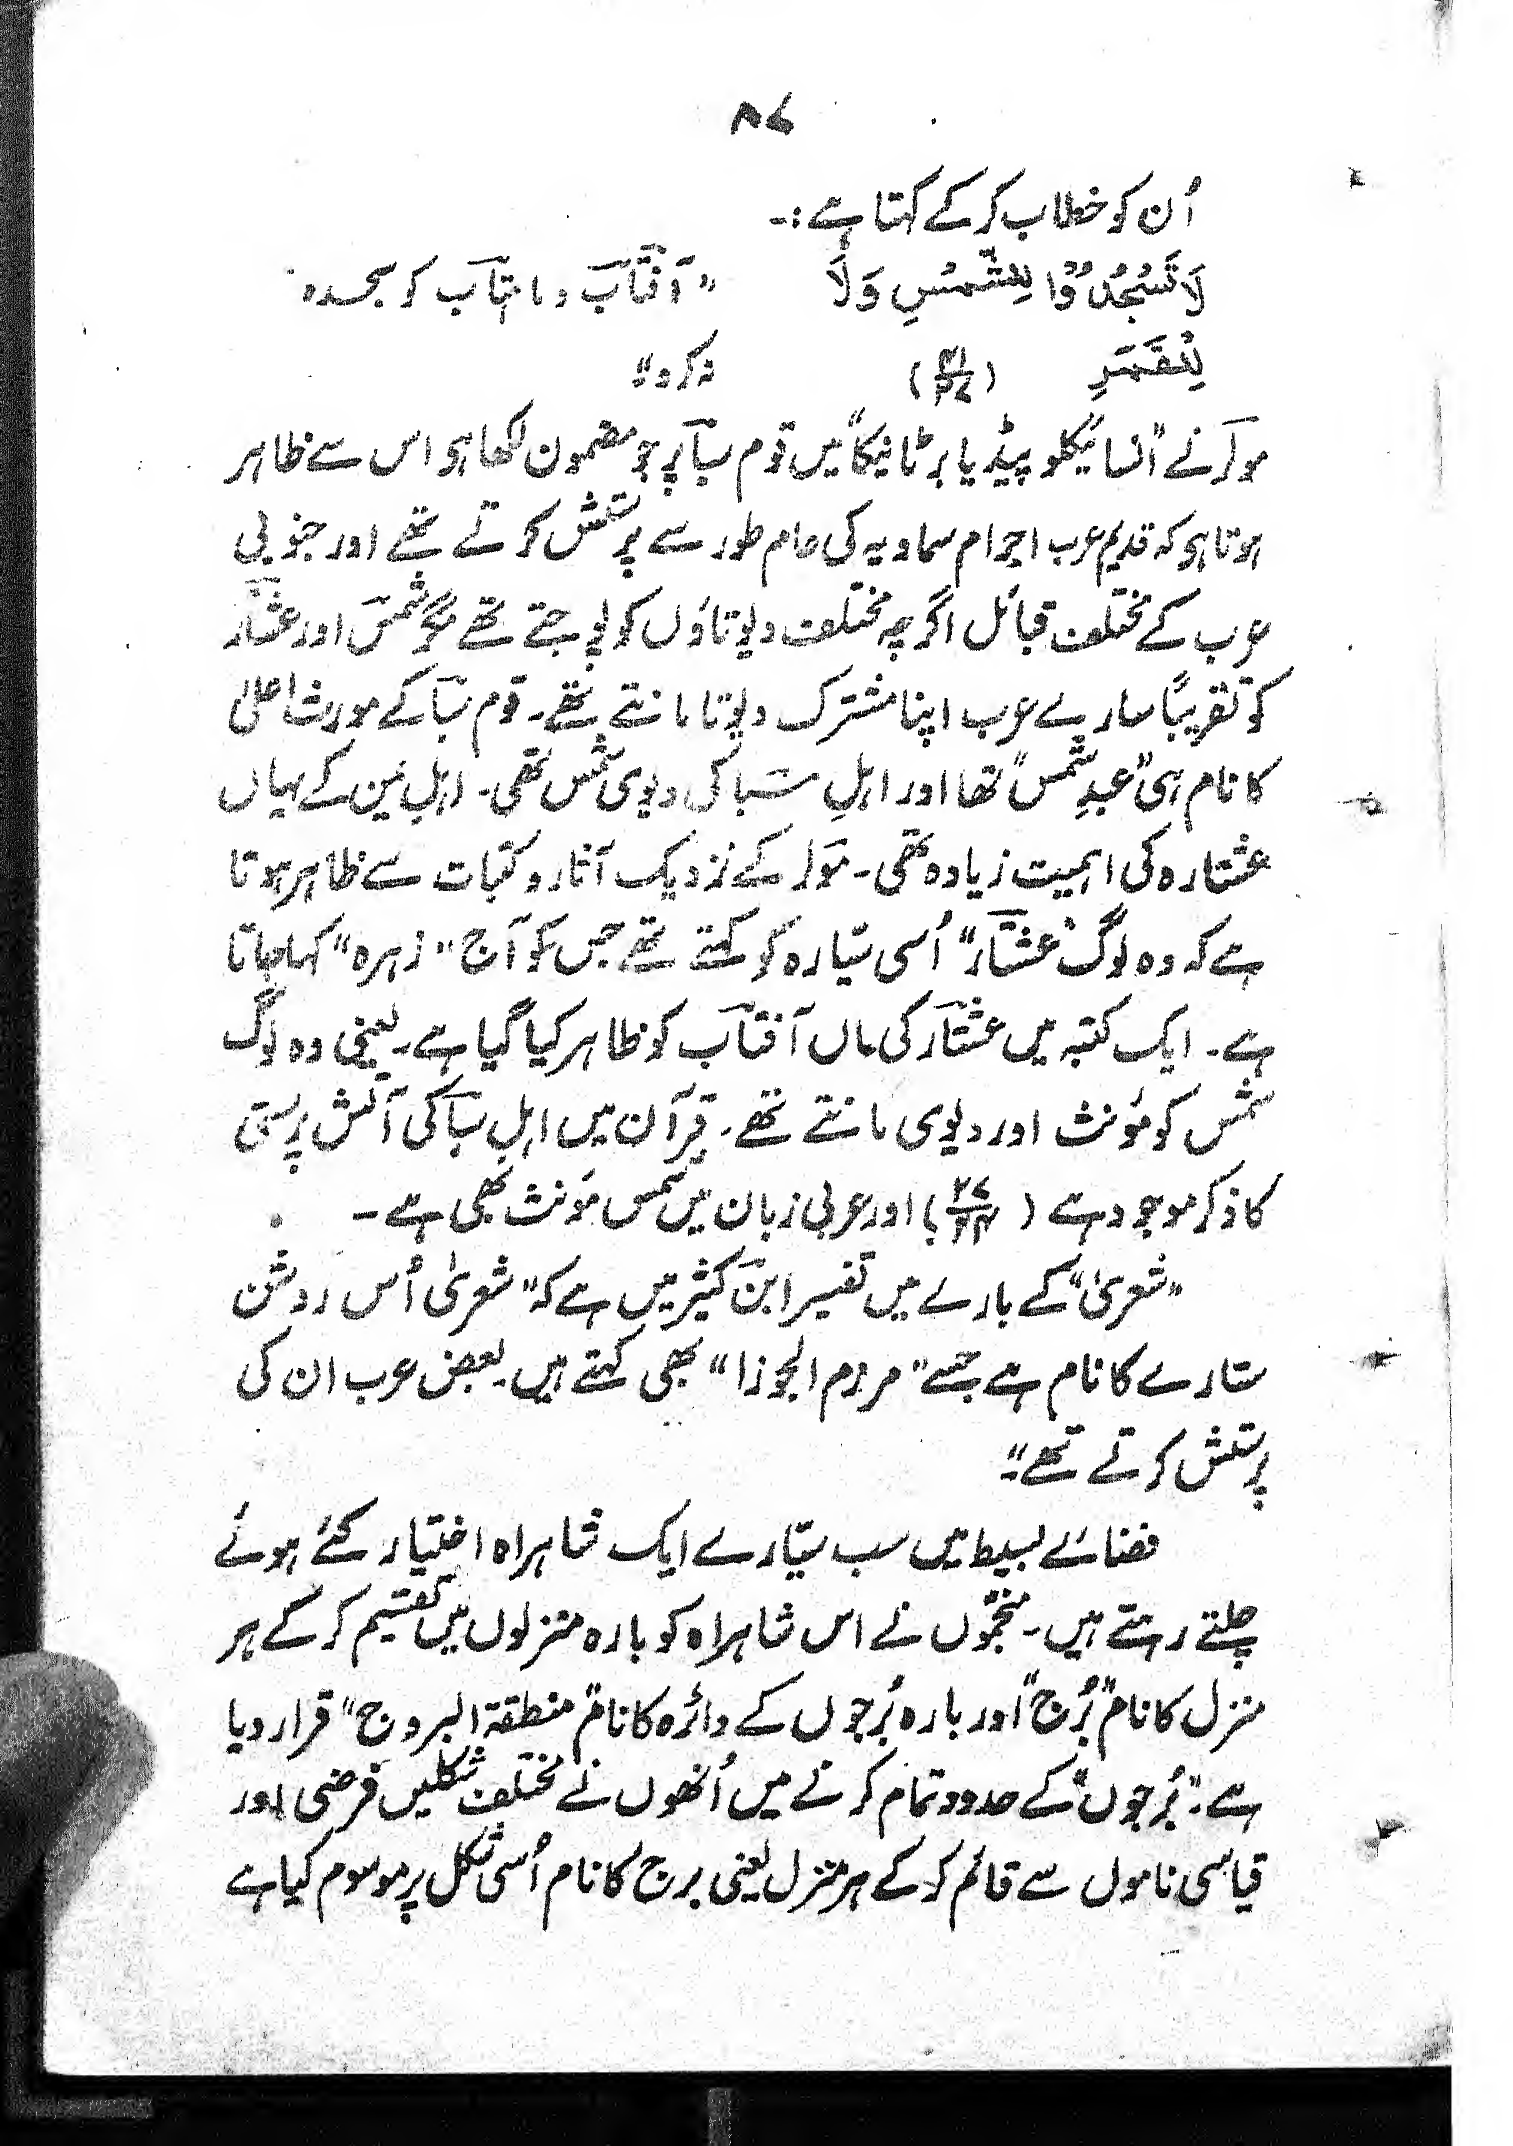 ۸۷
اُن کو خطاب کر کے کہتا ہے :۔
لَا تَسْجُدُوْا لِلشَّمْسِ وَلَا "آفتاب و ماہتاب کو سجدہ
لِلْقَمَرِ (۴۱/۳۷) نہ کرو"
مولر نے "انسائیکلوپیڈیا برٹانیکا" میں قوم سبا پر جو مضمون لکھا ہی اس سے ظاہر
ہوتا ہی کہ قدیم عرب اجرام سماویہ کی عام طور سے پرستش کرتے تھے اور جنوبی
عرب کے مختلف قبائل اگرچہ مختلف دیوتاؤں کو پوجتے تھے مگر شمس اور عشتار
کو تقریباً سارے عرب اپنا مشترک دیوتا مانتے تھے۔ قوم سبا کے مورث اعلیٰ
کا نام ہی "عبدِ شمس" تھا اور اہلِ سَبا کی دیوی شمس تھی۔ اہلِ یمن کے یہاں
عشتارہ کی اہمیت زیادہ تھی۔ مولر کے نزدیک آثار و کتبات سے ظاہر ہوتا
ہے کہ وہ لوگ "عشتار" اُسی سیّارہ کو کہتے تھے جس کو آج "زہرہ" کہا جاتا
ہے۔ ایک کتبہ میں عشتار کی ماں آفتاب کو ظاہر کیا گیا ہے۔ یعنی وہ لوگ
شمس کو مؤنث اور دیوی مانتے تھے۔ قرآن میں اہلِ سبا کی آتش پرستی
کا ذکر موجود ہے (۲۷/۲۴) اور عربی زبان میں شمس مؤنث بھی ہے۔
"شعریٰ" کے بارے میں تفسیر ابن کثیر میں ہے کہ "شعریٰ اُس روشن
ستارے کا نام ہے جسے "مرزم الجوزا" بھی کہتے ہیں بعض عرب ان کی
پرستش کرتے تھے"۔
فضائے بسیط میں سب سیّارے ایک شاہراہ اختیار کئے ہوئے
چلتے رہتے ہیں۔ منجّموں نے اس شاہراہ کو بارہ منزلوں میں تقسیم کر کے ہر
منزل کا نام "بُرج" اور بارہ بُرجوں کے دائرہ کا نام "منطقۃ البروج" قرار دیا
ہے۔ "بُرجوں" کے حدود تمام کرنے میں اُنھوں نے مختلف شکلیں فرضی اور
قیاسی ناموں سے قائم کر کے ہر منزل یعنی برج کا نام اُسی شکل پر موسوم کیا ہے